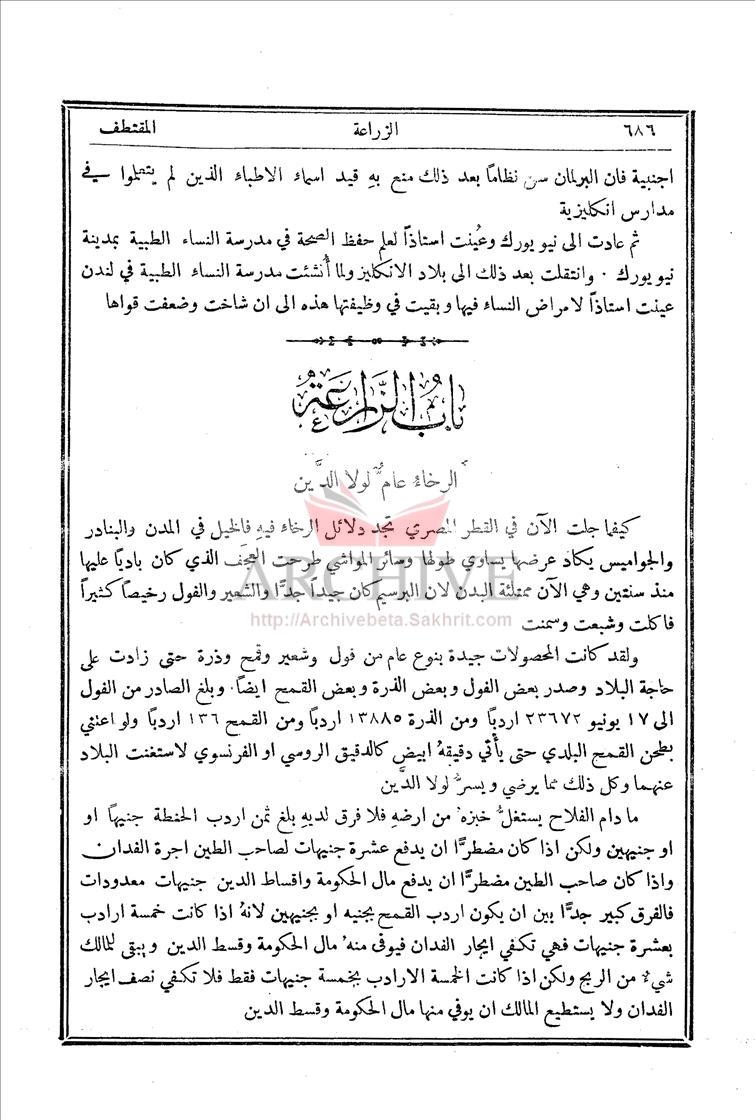 ٦٨٦ الزراعة المقتطف
اجنبية فان البرلمان سن نظاماً بعد ذلك منع بهِ قيد اسماء الاطباء الذين لم يتعلموا في
مدارس انكليزية
ثم عادت الى نيو يورك وعُينت استاذاً لعلم حفظ الصحة في مدرسة النساء الطبية بمدينة
نيو يورك . وانتقلت بعد ذلك الى بلاد الانكليز ولما أُنشئت مدرسة النساء الطبية في لندن
عينت استاذاً لامراض النساء فيها وبقيت في وظيفتها هذه الى ان شاخت وضعفت قواها
بابُ الزّراعَة
الرخاءُ عامٌّ لولا الدَّين
كيفما جلت الآن في القطر المصري تجد دلائل الرخاء فيهِ فالخيل في المدن والبنادر
والجواميس يكاد عرضها يساوي طولها وسائر المواشي طرحت العجف الذي كان بادياً عليها
منذ سنتين وهي الآن ممتلئة البدن لان البرسيم كان جيداً جدًّا والشعير والفول رخيصاً كثيراً
فاكلت وشبعت وسمنت
ARCHIVE
http://Archivebeta.Sakhrit.com
ولقد كانت المحصولات جيدة بنوع عام من فول وشعير وقمح وذرة حتى زادت على
حاجة البلاد وصدر بعض الفول وبعض الذرة وبعض القمح ايضاً. وبلغ الصادر من الفول
الى ١٧ يونيو ٢٣٦٧٢ اردبًا ومن الذرة ١٣٨٨٥ اردبًا ومن القمح ١٣٦ اردبًا ولو اعتني
بطحن القمح البلدي حتى يأتي دقيقهُ ابيض كالدقيق الروسي او الفرنسوي لاستغنت البلاد
عنهما وكل ذلك مما يرضي ويسرُّ لولا الدَّين
ما دام الفلاح يستغلُّ خبزهُ من ارضهِ فلا فرق لديهِ بلغ ثمن اردب الحنطة جنيهاً او
او جنيهين ولكن اذا كان مضطرًّا ان يدفع عشرة جنيهات لصاحب الطين اجرة الفدان
واذا كان صاحب الطين مضطرًّا ان يدفع مال الحكومة واقساط الدين جنيهات معدودات
فالفرق كبير جدًّا بين ان يكون اردب القمح بجنيه او بجنيهين لانهُ اذا كانت خمسة ارادب
بعشرة جنيهات فهي تكفي ايجار الفدان فيوفى منهُ مال الحكومة وقسط الدين ويبقى للمالك
شيءٌ من الربح ولكن اذا كانت الخمسة الارادب بخمسة جنيهات فقط فلا تكفي نصف ايجار
الفدان ولا يستطيع المالك ان يوفي منها مال الحكومة وقسط الدين